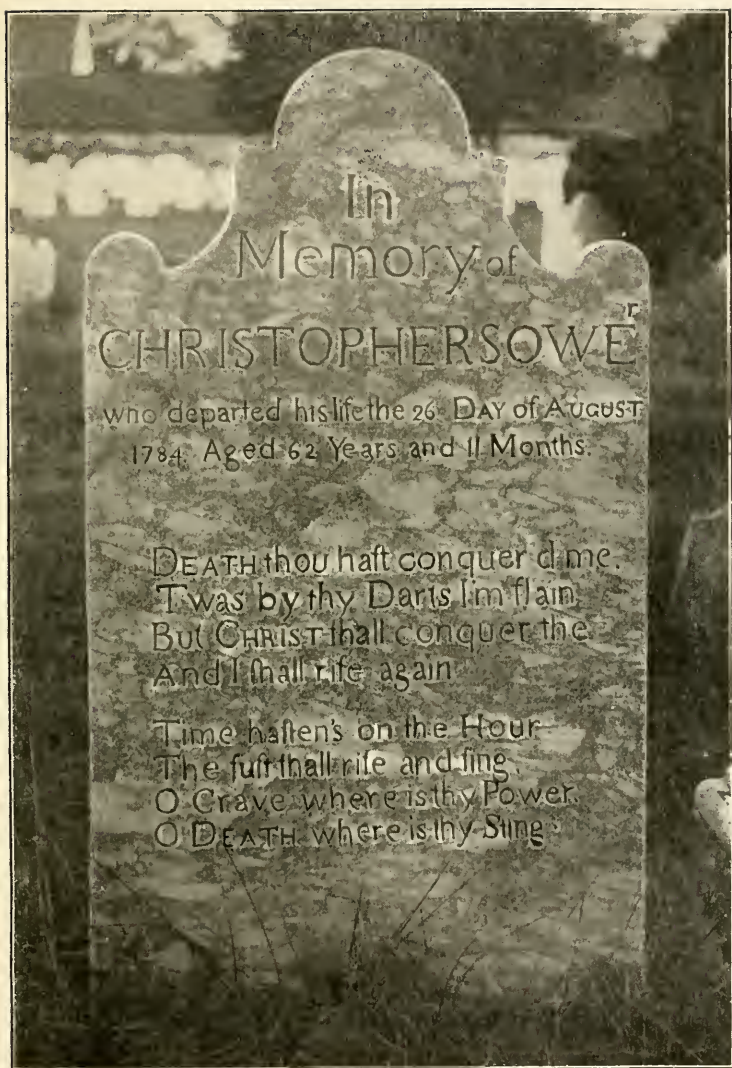 In
Memory of
CHRISTOPHER SOWEr
who departed his life the 26 DAY of AUGUST
1784. Aged 62 Years and 11 Months.
DEATH thou haſt conquer'd me.
T'was by thy Darts I'm ſlain
But CHRIST ſhall conquer the
And I ſhall riſe again
Time haſten's on the Hour
The juſt ſhall riſe and ſing
O Grave where is thy Power
O DEATH where is thy Sting